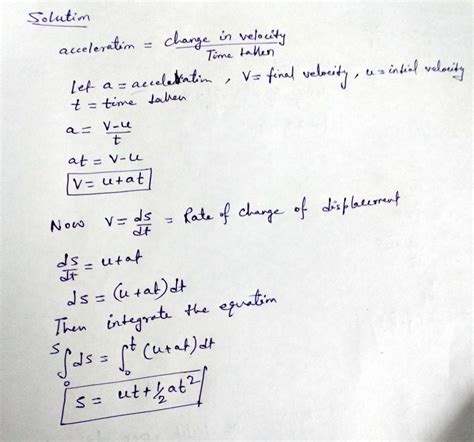 Solution
acceleration = change in velocity / Time taken
Let a = acceleration , V = final velocity , u = intial velocity
t = time taken
a = V-u / t
at = V-u
V = u+at
Now V = ds/dt = Rate of change of displacement
ds/dt = u+at
ds = (u+at)dt
Then integrate the equation
∫₀ˢ ds = ∫₀ᵗ (u+at)dt
s = ut + 1/2 at²